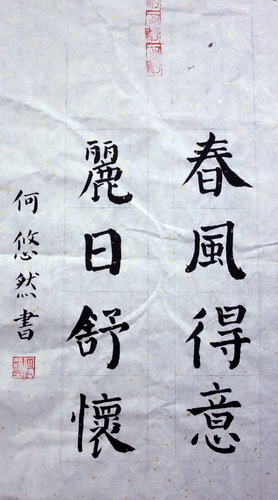 春風得意
麗日舒懷
何悠然書